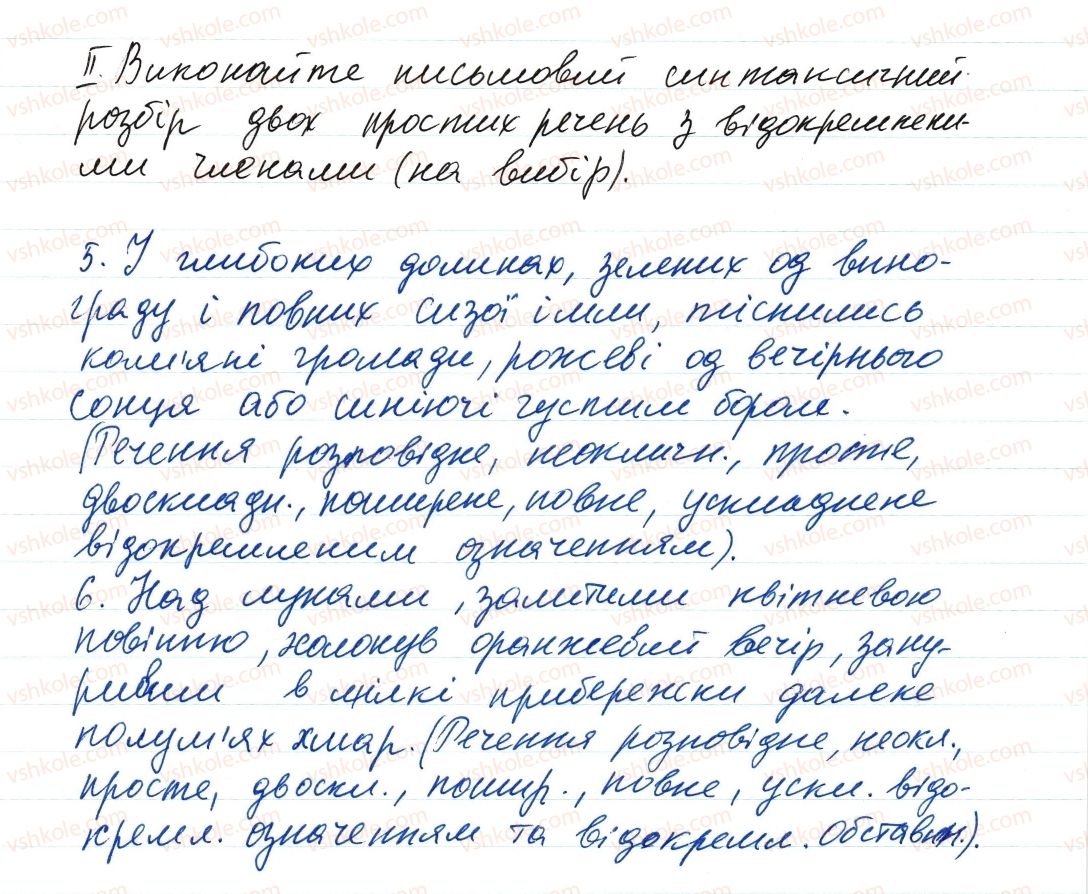 ІІ. Виконайте письмовий синтаксичний
розбір двох простих речень з відокремлени-
ми членами (на вибір).
5. У глибоких долинах, зелених од вино-
граду і повних сизої імли, тіснились
кам'яні громади, рожеві од вечірнього
сонця або синіючі густим бором.
(Речення розповідне, неокличн., просте,
двоскладн., поширене, повне, ускладнене
відокремленим означенням).
6. Над луками, залитими квітневою
повінню, холонув оранжевий вечір, зану-
ривши в мілкі прибережжя далеке
полум'ях хмар. (Речення розповідне, неокл.,
просте, двоскл., пошир., повне, ускл. відо-
кремл. означенням та відокремл. обставин.).